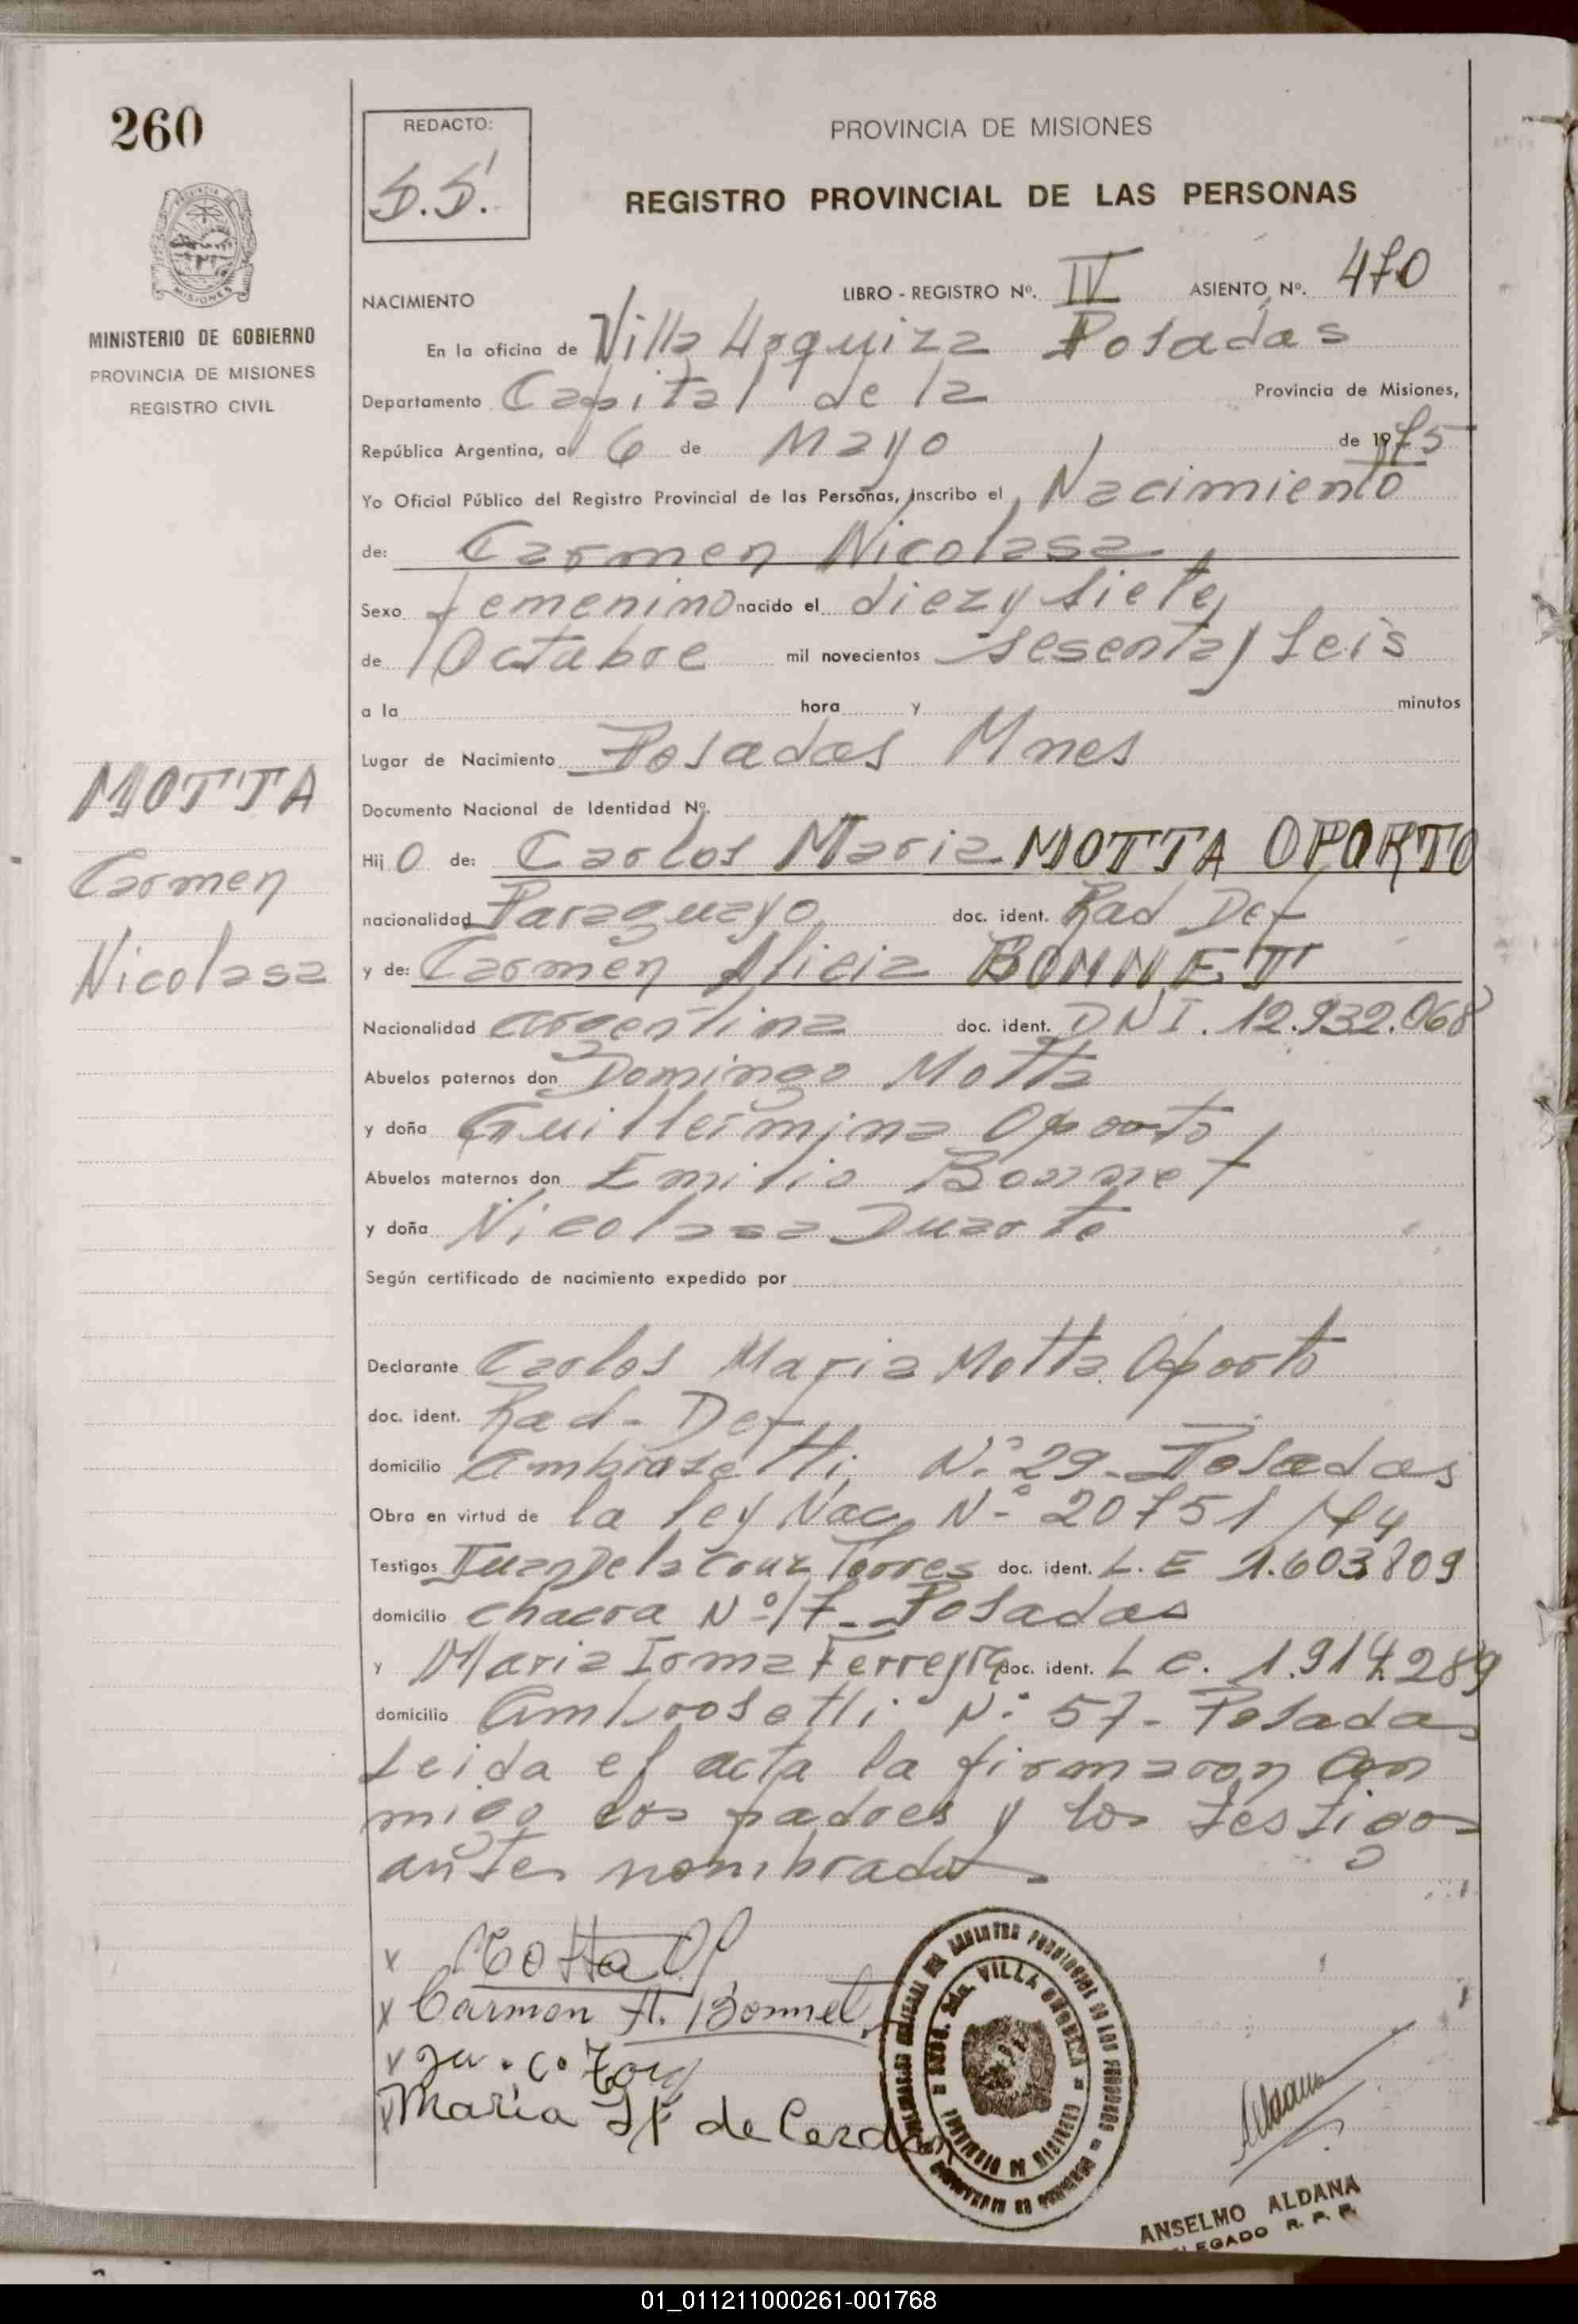 260
PROVINCIA DE MISIONES
MINISTERIO DE GOBIERNO
PROVINCIA DE MISIONES
REGISTRO CIVIL
MOTTA
Carmen
Nicolasa
REDACTO:
S.S.
PROVINCIA DE MISIONES
REGISTRO PROVINCIAL DE LAS PERSONAS
NACIMIENTO LIBRO - REGISTRO Nº. IV ASIENTO Nº. 470
En la oficina de Villa Urquiza Posadas
Departamento Capital de la Provincia de Misiones,
República Argentina, a 6 de Mayo de 1975
Yo Oficial Público del Registro Provincial de las Personas, inscribo el Nacimiento
de: Carmen Nicolasa
Sexo femenino nacido el diez y siete
de Octubre mil novecientos sesenta y seis
a la hora y minutos
Lugar de Nacimiento Posadas Mnes
Documento Nacional de Identidad Nº.
Hij o de: Carlos Maria MOTTA OPORTO
nacionalidad Paraguayo doc. ident. Rad Def
y de: Carmen Alicia BONNET
Nacionalidad argentina doc. ident. DNI. 12.932.068
Abuelos paternos don Domingo Motta
y doña Guillermina Oporto
Abuelos maternos don Emilio Bonnet
y doña Nicolasa Duarte
Según certificado de nacimiento expedido por
Declarante Carlos Maria Motta Oporto
doc. ident. Rad - Def
domicilio Ambrosetti Nº 29 - Posadas
Obra en virtud de la ley Nac. Nº 20751/74
Testigos Juan De la Cruz Torres doc. ident. L. E 1.603.809
domicilio chacra Nº 17 - Posadas
y Maria Irma Ferreyra doc. ident. L c. 1.914.289
domicilio Ambrosetti Nº 57 - Posadas
Leida el acta la firmaron con
migo los padres y los testigos
antes nombrados
x Motta Op
x Carmen A. Bonnet
x Ju. C. Torr
x Maria I F de
VILLA URQUIZA
ANSELMO ALDANA
DELEGADO R. P. P.
01_011211000261-001768